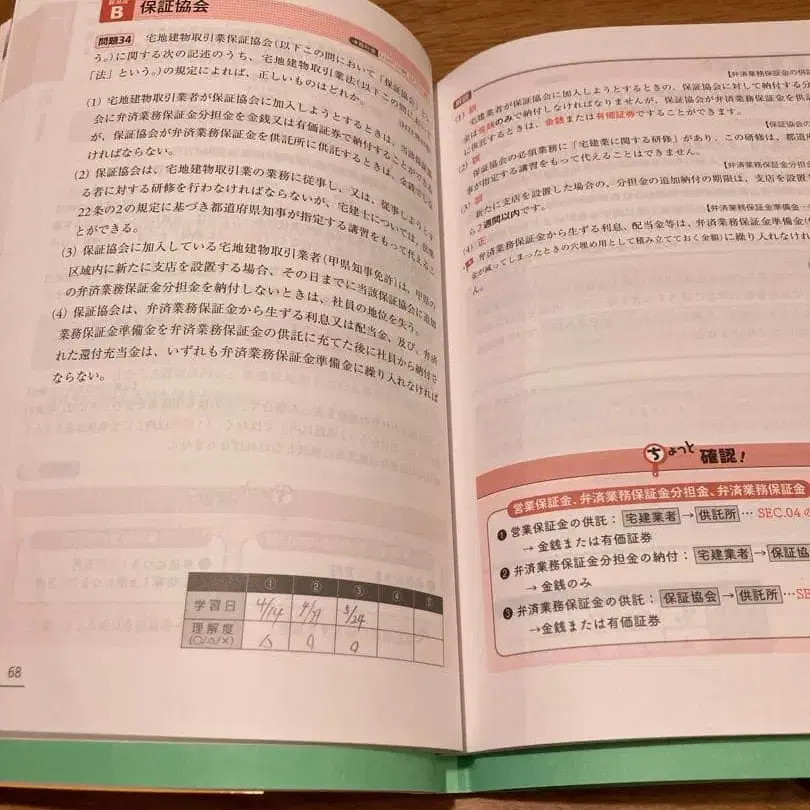 B 保証協会
問題34 宅地建物取引業保証協会(以下この問において「保証協会」とい
う。)に関する次の記述のうち、宅地建物取引業法(以下この問において
「法」という。)の規定によれば、正しいものはどれか。
(1) 宅地建物取引業者が保証協会に加入しようとするときは、当該保証協
会に弁済業務保証金分担金を金銭又は有価証券で納付することができる
が、保証協会が弁済業務保証金を供託所に供託するときは、金銭でしな
ければならない。
(2) 保証協会は、宅地建物取引業の業務に従事し、又は、従事しようとす
る者に対する研修を行わなければならないが、宅建士については、法第
22条の2の規定に基づき都道府県知事が指定する講習をもって代えるこ
とができる。
(3) 保証協会に加入している宅地建物取引業者(甲県知事免許)は、甲県の
区域内に新たに支店を設置する場合、その日までに当該保証協会に追加
の弁済業務保証金分担金を納付しないときは、社員の地位を失う。
(4) 保証協会は、弁済業務保証金から生ずる利息又は配当金、及び、弁済
業務保証金準備金を弁済業務保証金の供託に充てた後に社員から納付さ
れた還付充当金は、いずれも弁済業務保証金準備金に繰り入れなければ
ならない。
① ② ③ ④ ⑤
学習日 4/14 3/24
理解度
(○/△/×) △
68
解説
【弁済業務保証金の供託
(1) 誤
宅建業者が保証協会に加入しようとするときの、保証協会に対して納付する分
金は金銭のみで納付しなければなりませんが、保証協会が弁済業務保証金を供託
に供託するときは、金銭または有価証券ですることができます。
【保証協会の
(2) 誤
保証協会の必須業務に「宅建業に関する研修」があり、この研修は、都道府
事が指定する講習をもって代えることはできません。
【弁済業務保証金分担金
(3) 誤
新たに支店を設置した場合の、分担金の追加納付の期限は、支店を設置
ら2週間以内です。
【弁済業務保証金準備金
(4) 正
弁済業務保証金から生ずる利息、配当金等は、弁済業務保証金準備金(
金が減ってしまったときの穴埋め用として積み立てておく金額)に繰り入れなけれ
ん。
ちょっと確認!
営業保証金、弁済業務保証金分担金、弁済業務保証金
❶ 営業保証金の供託:宅建業者→供託所…SEC.04の
→ 金銭または有価証券
❷ 弁済業務保証金分担金の納付:宅建業者→保証協
→ 金銭のみ
❸ 弁済業務保証金の供託:保証協会→供託所…SE
→金銭または有価証券